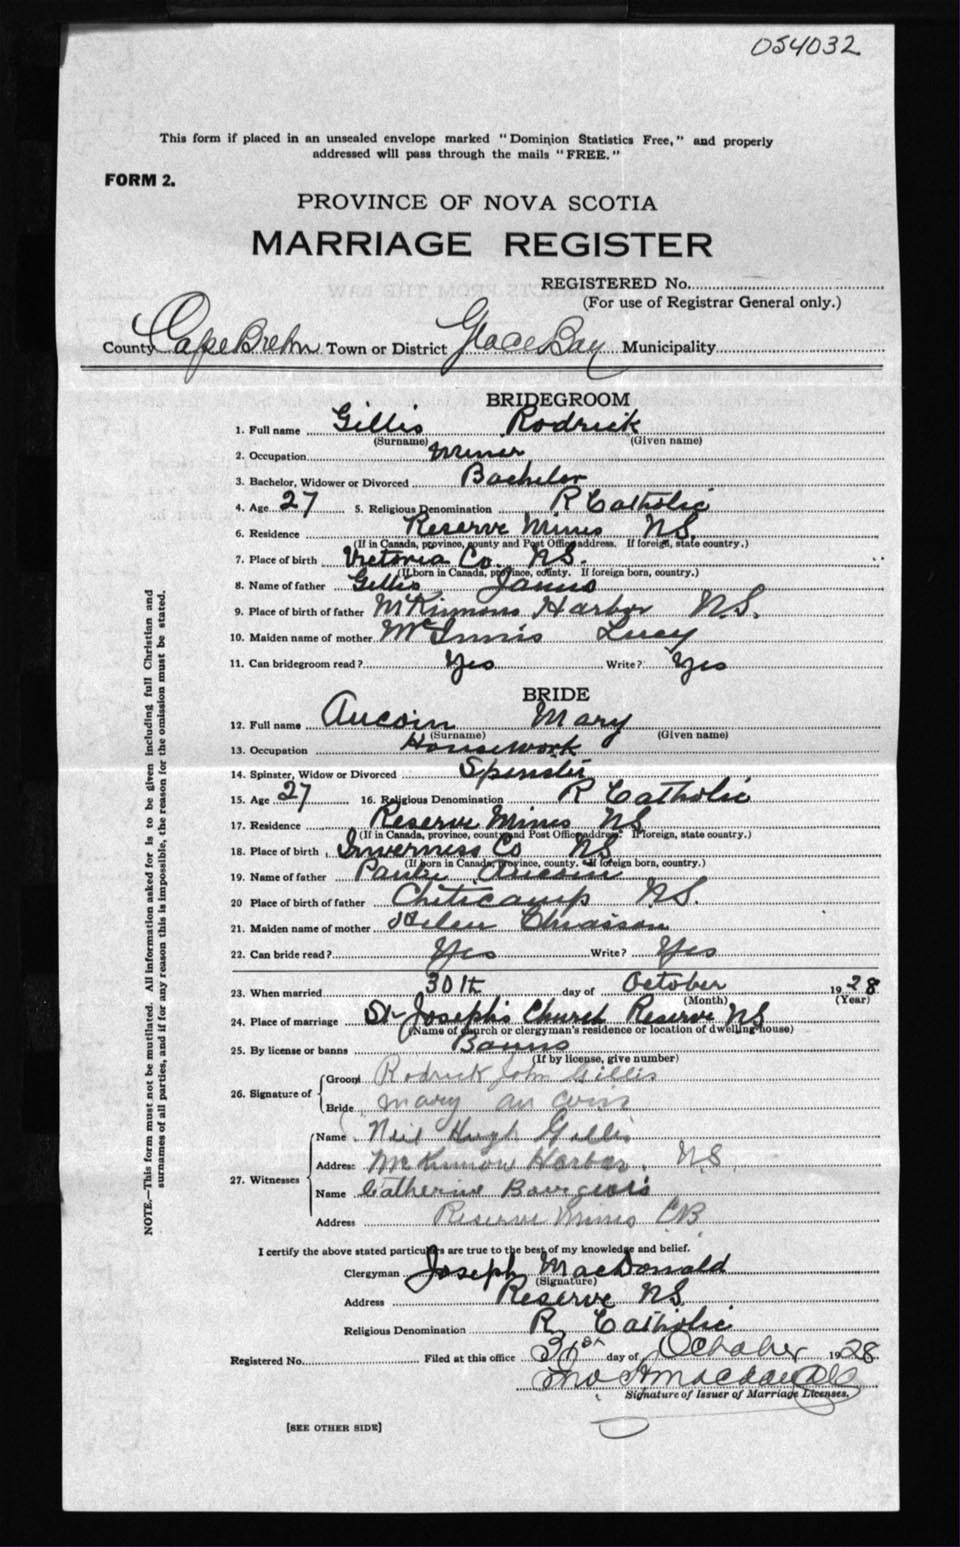 054032
This form if placed in an unsealed envelope marked "Dominion Statistics Free," and properly
addressed will pass through the mails "FREE."
FORM 2.
PROVINCE OF NOVA SCOTIA
MARRIAGE REGISTER
REGISTERED No.
(For use of Registrar General only.)
County Cape Breton Town or District Glace Bay Municipality
BRIDEGROOM
1. Full name Gillis Rodrick
(Surname) (Given name)
2. Occupation Miner
3. Bachelor, Widower or Divorced Bachelor
4. Age 27 5. Religious Denomination R Catholic
6. Residence Reserve Mines NS.
(If in Canada, province, county and Post Office address. If foreign, state country.)
7. Place of birth Victoria Co. NS.
(If born in Canada, province, county. If foreign born, country.)
8. Name of father Gillis James
9. Place of birth of father McKinnons Harbor N.S.
10. Maiden name of mother McInnis Lucy
11. Can bridegroom read? Yes Write? Yes
BRIDE
12. Full name Aucoin Mary
(Surname) (Given name)
13. Occupation Housework
14. Spinster, Widow or Divorced Spinster
15. Age 27 16. Religious Denomination R Catholic
17. Residence Reserve Mines NS
(If in Canada, province, county and Post Office address. If foreign, state country.)
18. Place of birth Inverness Co NS
(If born in Canada, province, county. If foreign born, country.)
19. Name of father Aucoin
20 Place of birth of father Cheticamp NS.
21. Maiden name of mother Helen Chiasson
22. Can bride read? Yes Write? Yes
23. When married 30th day of October 1928
(Month) (Year)
24. Place of marriage St Joseph's Church Reserve NS
(Name of church or clergyman's residence or location of dwelling house)
25. By license or banns Banns
(If by license, give number)
26. Signature of
Groom Rodrick John Gillis
Bride Mary au coin
27. Witnesses
Name Neil Hugh Gillis
Address McKinnon Harbor. N.S.
Name Catherine Bourgeois
Address Reserve Mines CB
I certify the above stated particulars are true to the best of my knowledge and belief.
Clergyman Joseph MacDonald
(Signature)
Address Reserve NS
Religious Denomination R Catholic
Registered No. Filed at this office 31st day of October 1928.
Signature of Issuer of Marriage Licenses.
[SEE OTHER SIDE]
NOTE.—This form must not be mutilated. All information asked for is to be given including full Christian and
surnames of all parties, and if for any reason this is impossible, the reason for the omission must be stated.